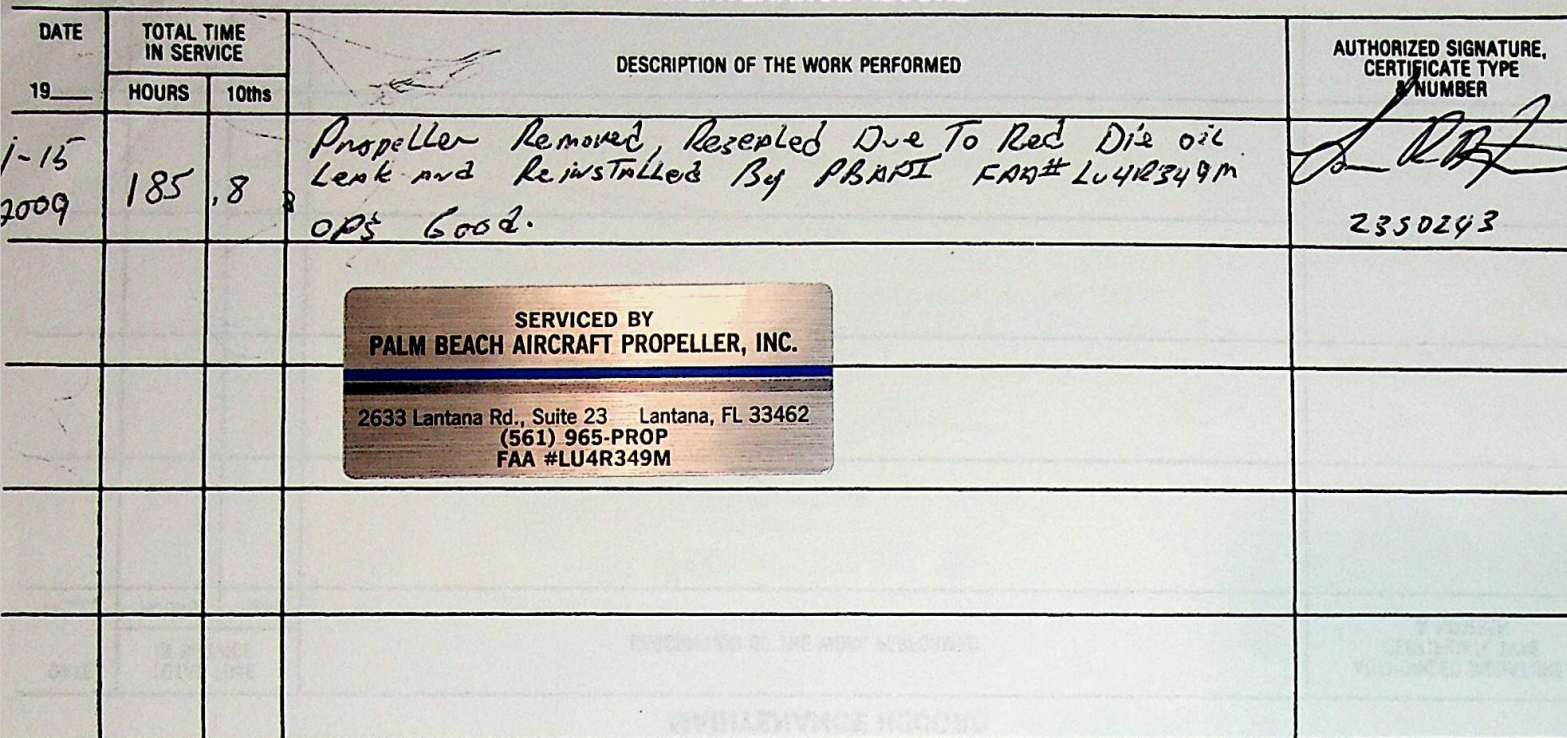 DATE
TOTAL TIME
IN SERVICE
19___
HOURS
10ths
DESCRIPTION OF THE WORK PERFORMED
AUTHORIZED SIGNATURE,
CERTIFICATE TYPE
& NUMBER
1-15
2009
185
.8
Propeller Removed, Resealed Due To Red Die oil
Leak and Reinstalled By PBAPI FAA# LU4R349M
OPS Good.
2350243
SERVICED BY
PALM BEACH AIRCRAFT PROPELLER, INC.
2633 Lantana Rd., Suite 23 Lantana, FL 33462
(561) 965-PROP
FAA #LU4R349M